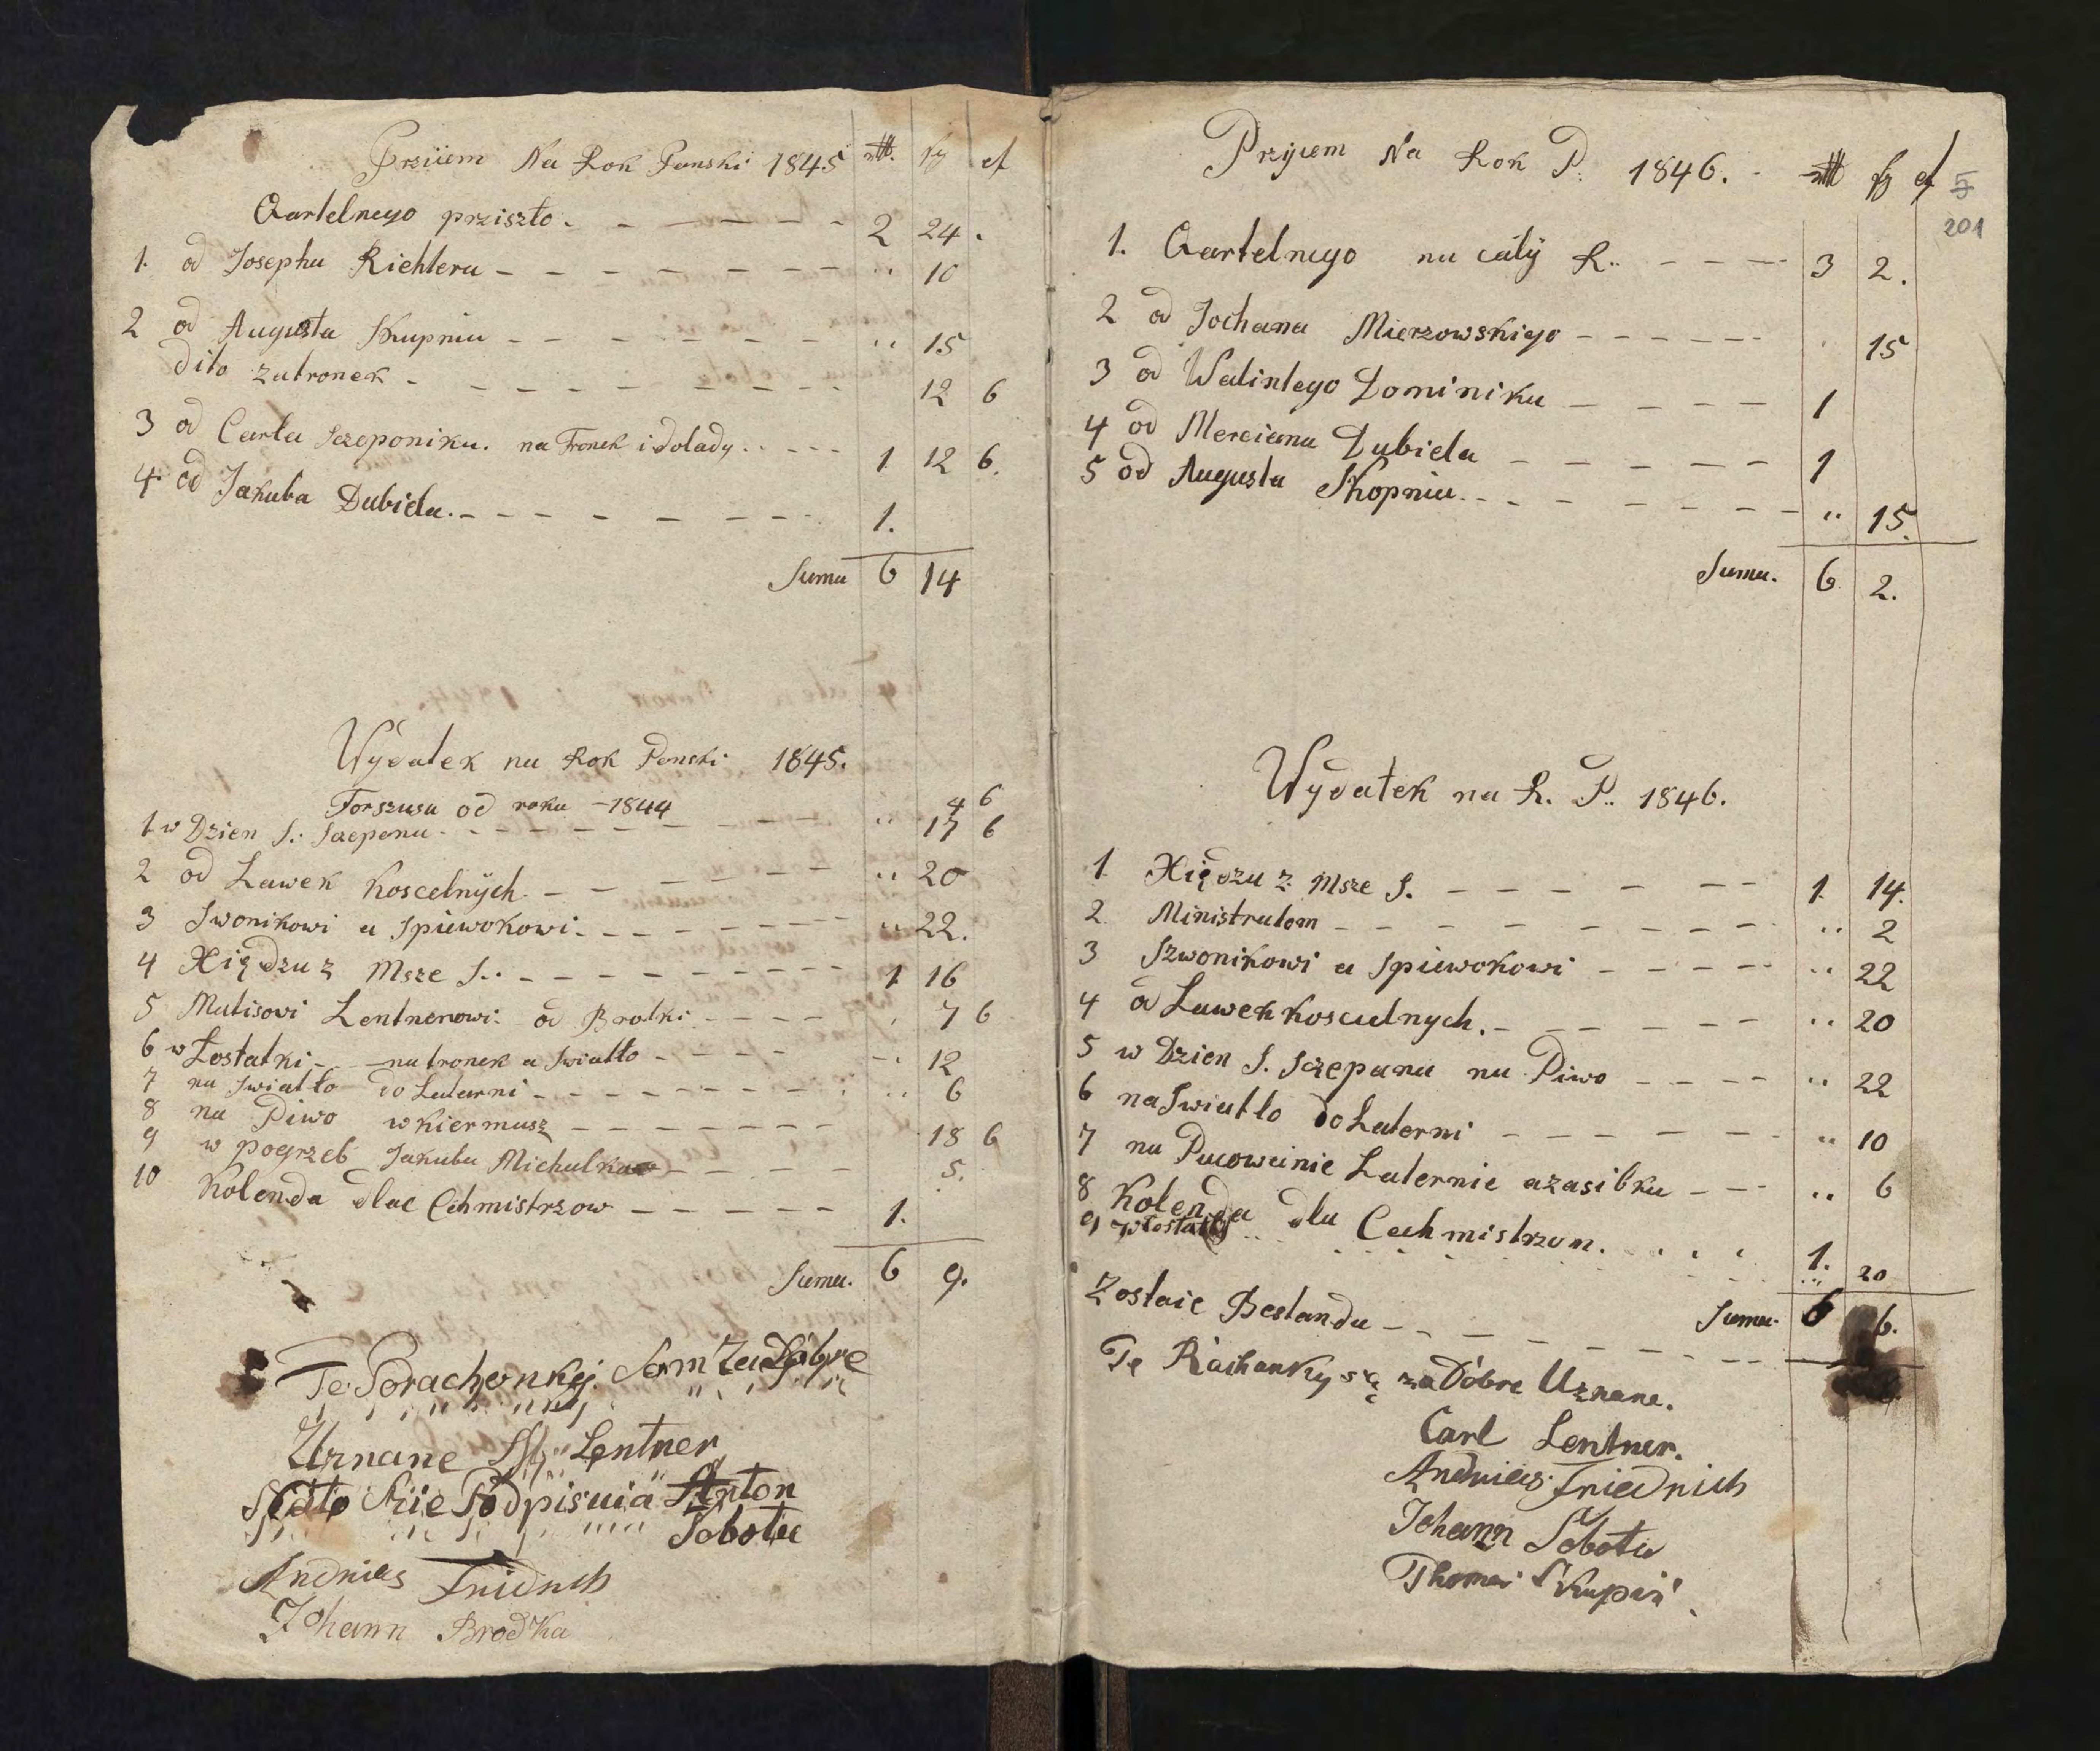 Prziiem Na Rok Panski 1845 rtl. sg d
Qartelnego prziszło 2 24
1. od Josepha Richtera 10
2 od Augusta Skupnia 15
dito zatronek 12 6
3 od Carla Szczeponika. na Tronek i dolady 1 12 6.
4 od Jakuba Dubiela 1.
Suma 6 14
Wydatek na Rok Panski 1845.
Forszusu od roku 1844 4 6
1 w Dzien S. Szczepana 17 6
2 od Lawek Koscelnych 20
3 Swonikowi a Spiewokowi 22.
4 Xiędzu z Msze S. 1 16
5 Matisowi Lentnerowi od Brotki 7 6
6 w Łostatki na tronek a Swiatło 12
7 na Swiatło do Latarni 6
8 na Piwo w Kiermusz 18 6
9 w pogrzeb Jakuba Michalka 5.
10 Kolenda dlae Cehmistrzow 1.
Suma. 6 9.
Te Porachonkÿ Som Za Dobre
Uznane Lentner
Sposto Sie Podpisuia Anton
Sobota
Andries Fridrich
Johann Brodka
Przyiem Na Rok P. 1846. rtl sg d
5
201
1. Qartelnego na cały R. 3 2.
2 od Jochana Mierzowskiego 15
3 od Walintego Dominika 1
4 od Merciana Dubiela 1
5 od Augusta Skopnia 15.
Suma. 6 2.
Wydatek na R. P. 1846.
1 Xiędzu z Msze S. 1. 14.
2 Ministratom 2
3 Szwonikowi a Spiewokowi 22
4 od Lawek koscielnych. 20
5 w Dzien S. Szczepana na Piwo 22
6 na Swiatło do Laterni 10
7 na Pucowainie Laternie azasibka 6
8 Kolenda dla Cechmistrzom. 1.
9 w Łostatki 20
Suma 6 6.
Zostaie Bestandu
Te Rachanky są za Dobre Uznane.
Carl Lentner.
Andries Friedrich
Johann Sobota
Thomas Skupiń